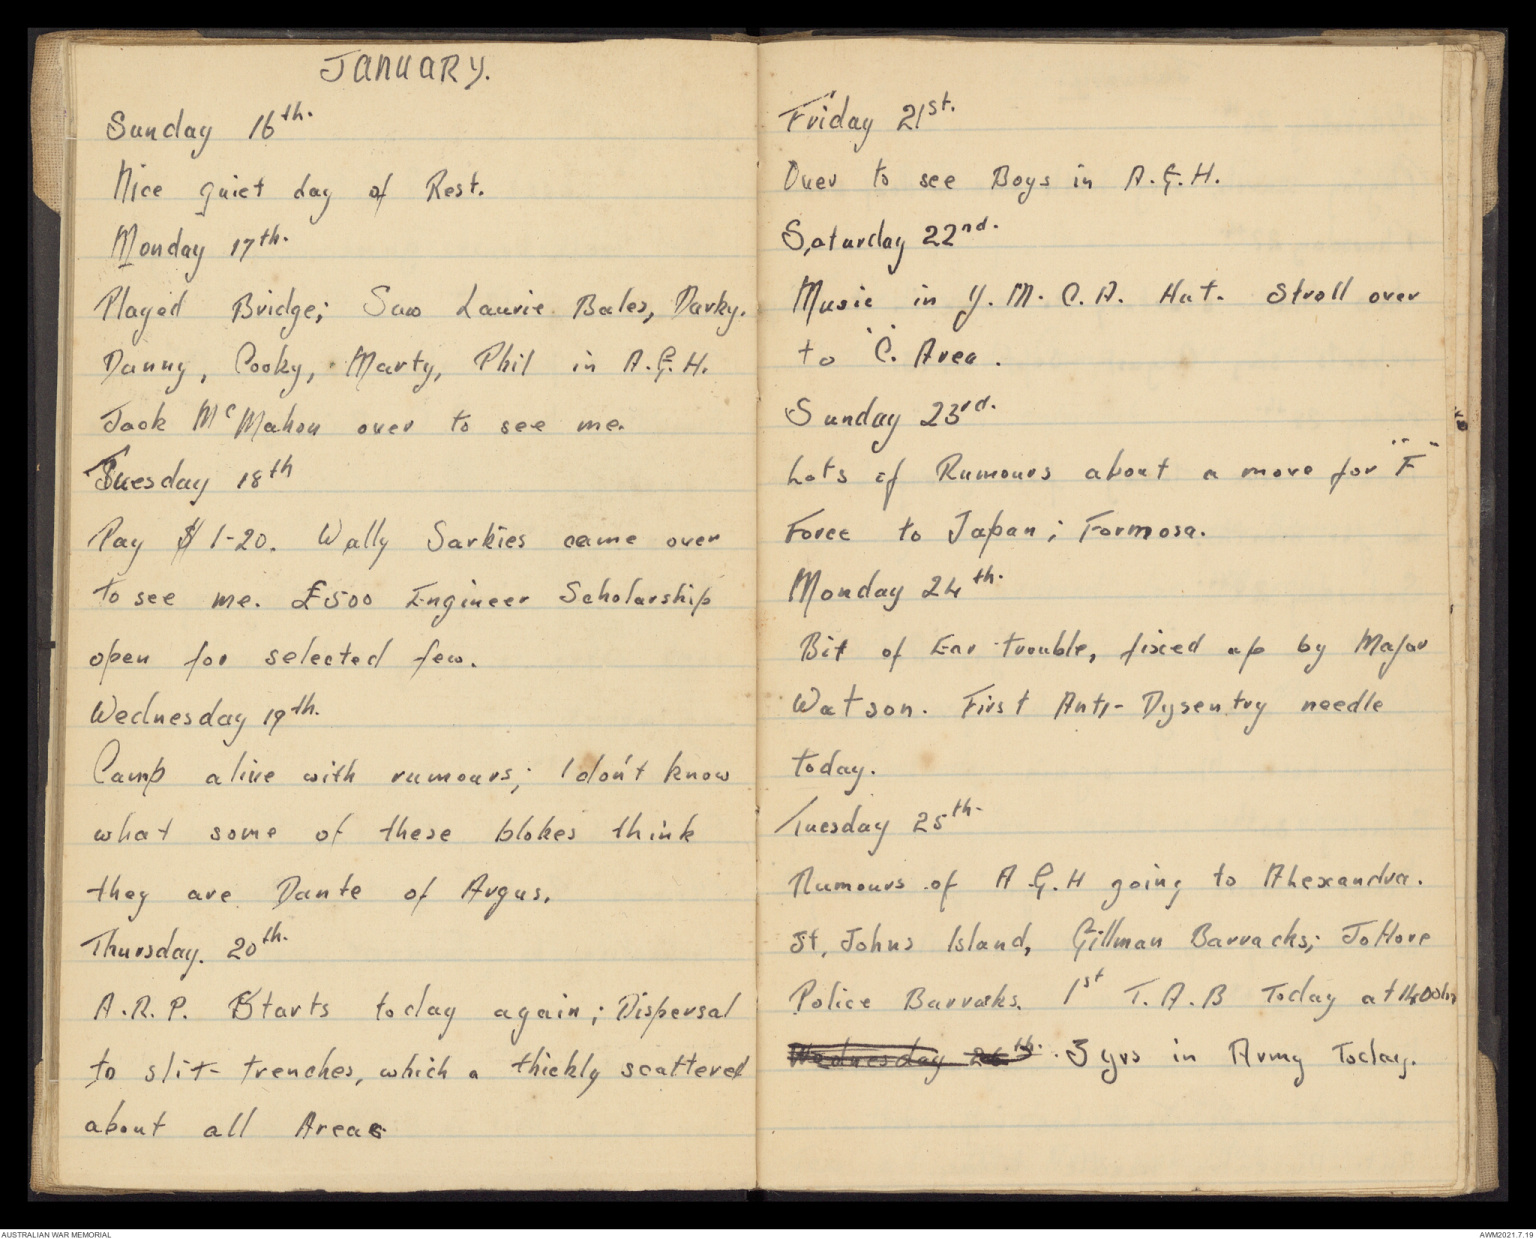 JANUARY.
Sunday 16th.
Nice quiet day of Rest.
Monday 17th.
Played Bridge; Saw Laurie Bales, Darky.
Danny, Cooky, Marty, Phil in A.G.H.
Jack McMahon over to see me.
Tuesday 18th
Pay $1-20. Wally Sarkies came over
to see me. £500 Engineer Scholarship
open for selected few.
Wednesday 19th.
Camp alive with rumours; I don't know
what some of these blokes think
they are Dante of Argus.
Thursday. 20th.
A.R.P. Starts today again; Dispersal
to slit-trenches, which a thickly scattered
about all Areas
Friday 21st.
Over to see Boys in A.G.H.
Saturday 22nd.
Music in Y.M.C.A. Hut. Stroll over
to "C. Area.
Sunday 23rd.
Lots of Rumours about a move for "F"
Force to Japan; Formosa.
Monday 24th.
Bit of Ear trouble, fixed up by Major
Watson. First Anti-Dysentry needle
today.
Tuesday 25th.
Rumours of A.G.H going to Alexandra.
St. Johns Island, Gillman Barracks; JoHore
Police Barracks. 1st T.A.B Today at 1400hr
Wednesday 26th. 3 yrs in Army Today.
AUSTRALIAN WAR MEMORIAL
AWM2021.7.19